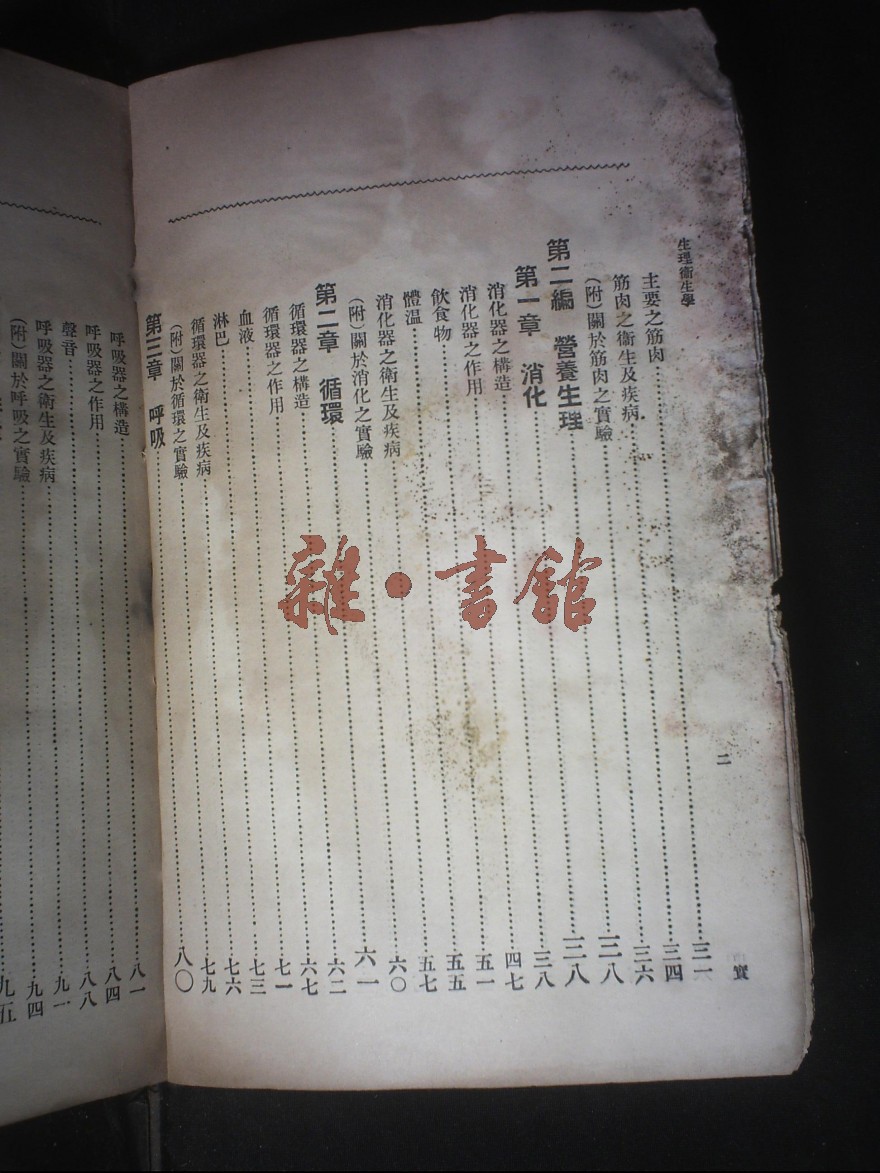 生理衞生學 二
實
主要之筋肉……三一
筋肉之衞生及疾病……三四
(附)關於筋肉之實驗……三六
第二編 營養生理……三八
第一章 消化……三八
消化器之構造……三八
消化器之作用……四七
飲食物……五一
體温……五五
消化器之衞生及疾病……五七
(附)關於消化之實驗……六〇
第二章 循環……六一
循環器之構造……六二
循環器之作用……六七
血液……七一
淋巴……七三
循環器之衞生及疾病……七六
(附)關於循環之實驗……七九
第三章 呼吸……八〇
呼吸器之構造……八一
呼吸器之作用……八四
聲音……八八
呼吸器之衞生及疾病……九一
(附)關於呼吸之實驗……九四
九五
雜·書館